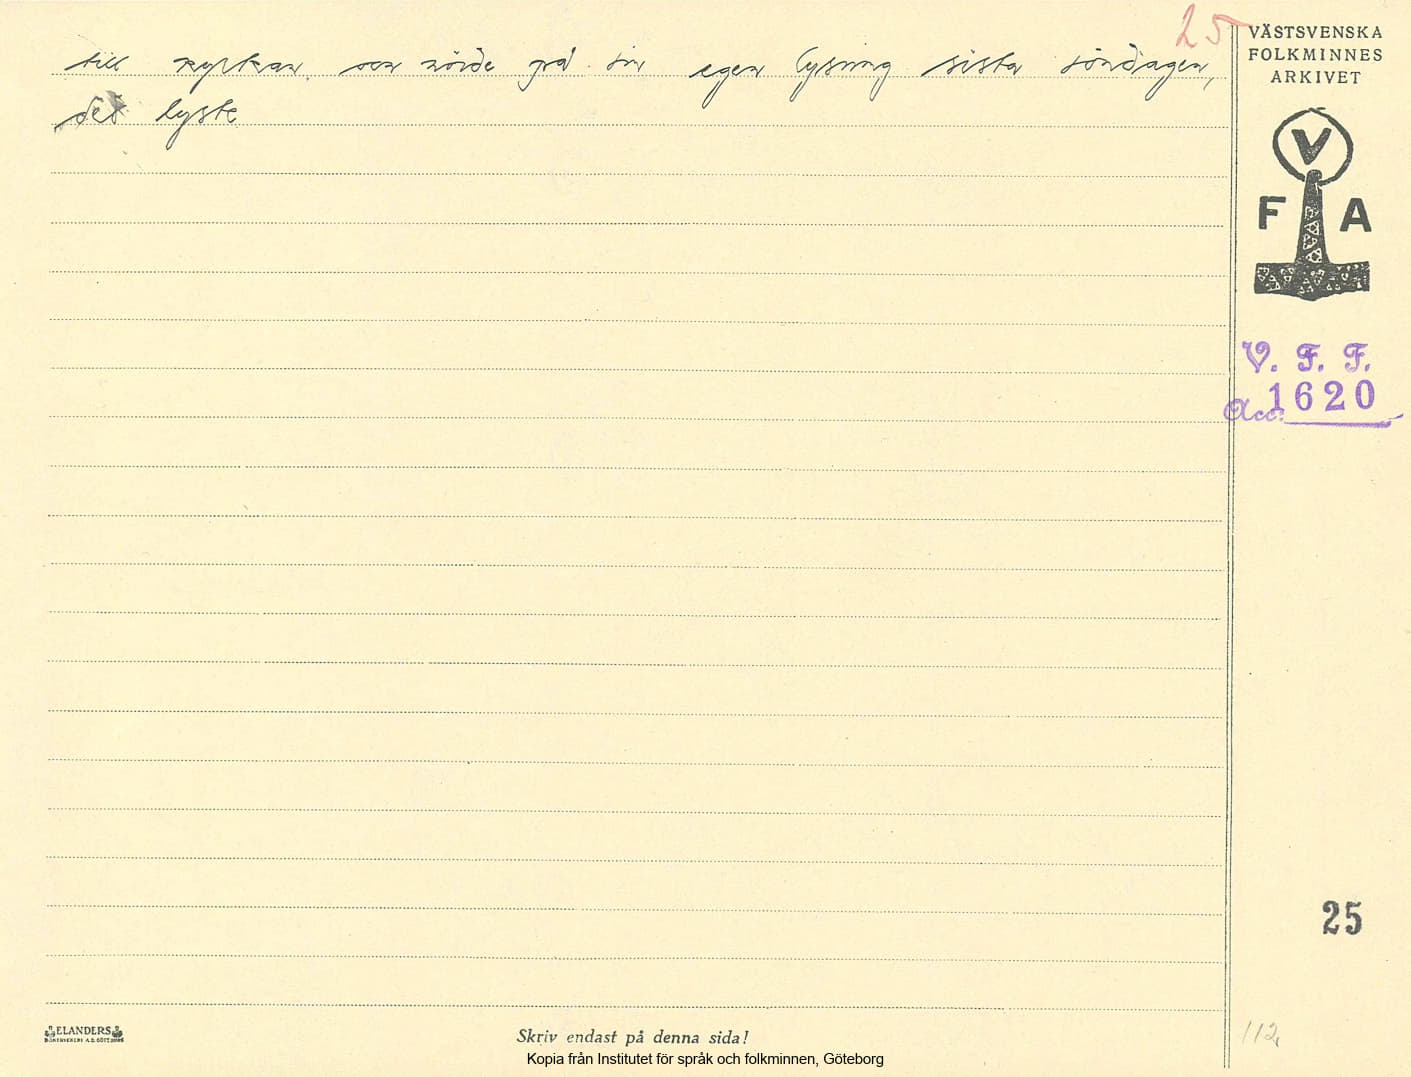 25
till kyrkan och hörde på sin egen lysning sista söndagen,
det lyste
VÄSTSVENSKA
FOLKMINNES
ARKIVET
V
F A
V. F. F.
Acc. 1620
25
ELANDERS
Skriv endast på denna sida!
112
Kopia från Institutet för språk och folkminnen, Göteborg